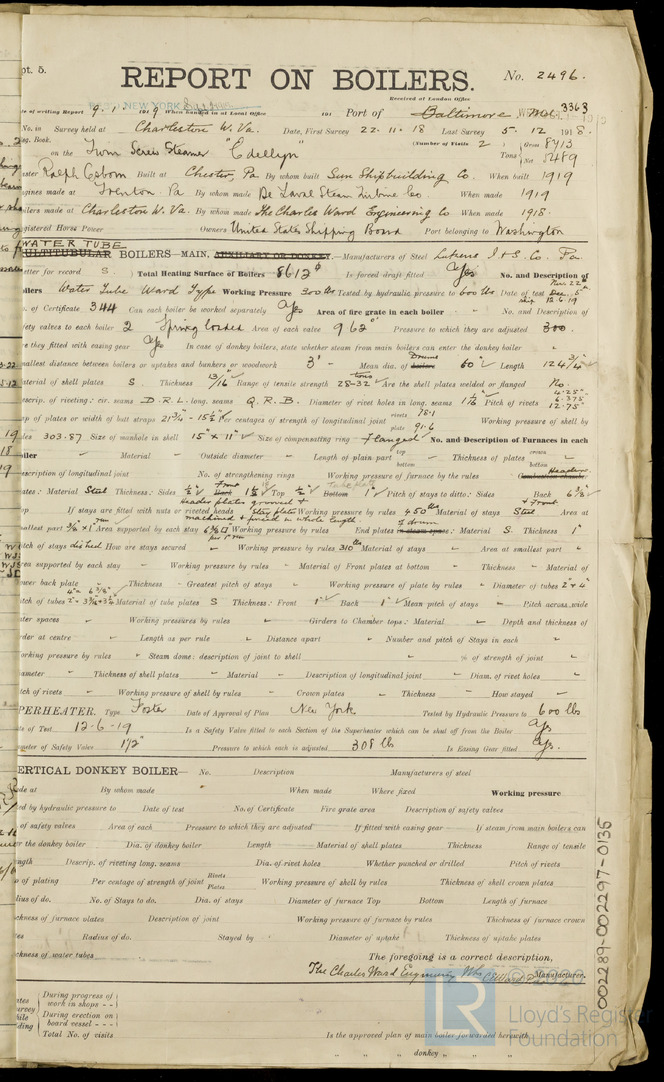 pt. 5.
REPORT ON BOILERS.
No. 2496.
Received at London Office
of writing Report 9. 1. 1919 When handed in at Local Office 191 Port of Baltimore 3363
No. in Survey held at Charleston W. Va. Date, First Survey 22. 11. 18 Last Survey 5. 12 1918.
Book. (Number of Visits 2) Gross 8713
on the Iron Screw Steamer "Edellyn" Tons Net 5489
Master Ralph Osborn Built at Chester, Pa By whom built Sun Shipbuilding Co. When built 1919
Engines made at Trenton. Pa By whom made De Laval Steam Turbine Co. When made 1919
Boilers made at Charleston W. Va. By whom made The Charles Ward Engineering Co When made 1918.
Registered Horse Power Owners United States Shipping Board Port belonging to Washington
WATER TUBE
MULTITUBULAR BOILERS—MAIN, AUXILIARY OR DONKEY.—Manufacturers of Steel Lukens I & S. Co. Pa
Letter for record S. Total Heating Surface of Boilers 8613 Is forced draft fitted Yes No. and Description of
Boilers Water Tube Ward Type Working Pressure 300 lbs Tested by hydraulic pressure to 600 lbs Date of test Dec. 5th
No. of Certificate 344 Can each boiler be worked separately Yes Area of fire grate in each boiler No. and Description of
safety valves to each boiler 2 Spring loaded Area of each valve 9.62" Pressure to which they are adjusted 300.
Are they fitted with easing gear Yes In case of donkey boilers, state whether steam from main boilers can enter the donkey boiler "
Smallest distance between boilers or uptakes and bunkers or woodwork 3' Mean dia. of Drums boilers 60" Length 124 3/4"
Material of shell plates S. Thickness 13/16 Range of tensile strength 28-32 tons Are the shell plates welded or flanged No.
Descrip. of riveting: cir. seams D. R. L. long. seams Q. R. B. Diameter of rivet holes in long. seams 1 1/16 Pitch of rivets 4.25" 6.375 12.75"
Lap of plates or width of butt straps 21 3/4 - 15 1/2 Per centages of strength of longitudinal joint rivets 98.1 plate 91.6 Working pressure of shell by
rules 303.87 Size of manhole in shell 15" x 11" Size of compensating ring flanged No. and Description of Furnaces in each
boiler Material Outside diameter Length of plain part top bottom Thickness of plates crown bottom
Description of longitudinal joint No. of strengthening rings Working pressure of furnace by the rules Combustion chamber Headers
plates: Material Steel Thickness: Sides 1/2" Back Front 1 1/2 Top 1/2" Bottom Tube plate 1" Pitch of stays to ditto: Sides Back 6 3/8" & Front
Header plates grooved &
Top If stays are fitted with nuts or riveted heads Stay plate Working pressure by rules 450 lbs Material of stays Steel Area at
machined & fused in whole length.
smallest part Area supported by each stay Working pressure by rules End plates in steam space: of drum Material S. Thickness 1"
Pitch of stays dished How are stays secured Working pressure by rules 310 lbs Material of stays Area at smallest part
Area supported by each stay Working pressure by rules Material of Front plates at bottom Thickness Material of
Lower back plate Thickness Greatest pitch of stays Working pressure of plate by rules Diameter of tubes 2" & 4"
4" = 6 3/8"
Pitch of tubes 2" = 3 3/4 x 3 1/4 Material of tube plates S Thickness: Front 1" Back 1" Mean pitch of stays Pitch across wide
water spaces Working pressures by rules Girders to Chamber tops: Material Depth and thickness of
girder at centre Length as per rule Distance apart Number and pitch of Stays in each
Working pressure by rules Steam dome: description of joint to shell % of strength of joint
Diameter Thickness of shell plates Material Description of longitudinal joint Diam. of rivet holes
Pitch of rivets Working pressure of shell by rules Crown plates Thickness How stayed
SUPERHEATER. Type Foster Date of Approval of Plan New York Tested by Hydraulic Pressure to 600 lbs
Date of Test 12-6-19 Is a Safety Valve fitted to each Section of the Superheater which can be shut off from the Boiler Yes
Diameter of Safety Valve 1 1/2" Pressure to which each is adjusted 308 lbs Is Easing Gear fitted Yes.
VERTICAL DONKEY BOILER— No. Description Manufacturers of steel
Made at By whom made When made Where fixed Working pressure
tested by hydraulic pressure to Date of test No. of Certificate Fire grate area Description of safety valves
No. of safety valves Area of each Pressure to which they are adjusted If fitted with easing gear If steam from main boilers can
enter the donkey boiler Dia. of donkey boiler Length Material of shell plates Thickness Range of tensile
strength Descrip. of riveting long. seams Dia. of rivet holes Whether punched or drilled Pitch of rivets
Lap of plating Per centage of strength of joint Rivets Plates Working pressure of shell by rules Thickness of shell crown plates
Radius of do. No. of Stays to do. Dia. of stays Diameter of furnace Top Bottom Length of furnace
Thickness of furnace plates Description of joint Working pressure of furnace by rules Thickness of furnace crown
plates Radius of do. Stayed by Diameter of uptake Thickness of uptake plates
Thickness of water tubes
The foregoing is a correct description,
The Charles Ward Engineering Wks Manufacturer.
Dates of Survey while building
During progress of work in shops - -
During erection on board vessel - - -
Total No. of visits
Is the approved plan of main boiler forwarded herewith
" " donkey " "
002289-002297-0135
LR
© 2020
Lloyd's Register
Foundation